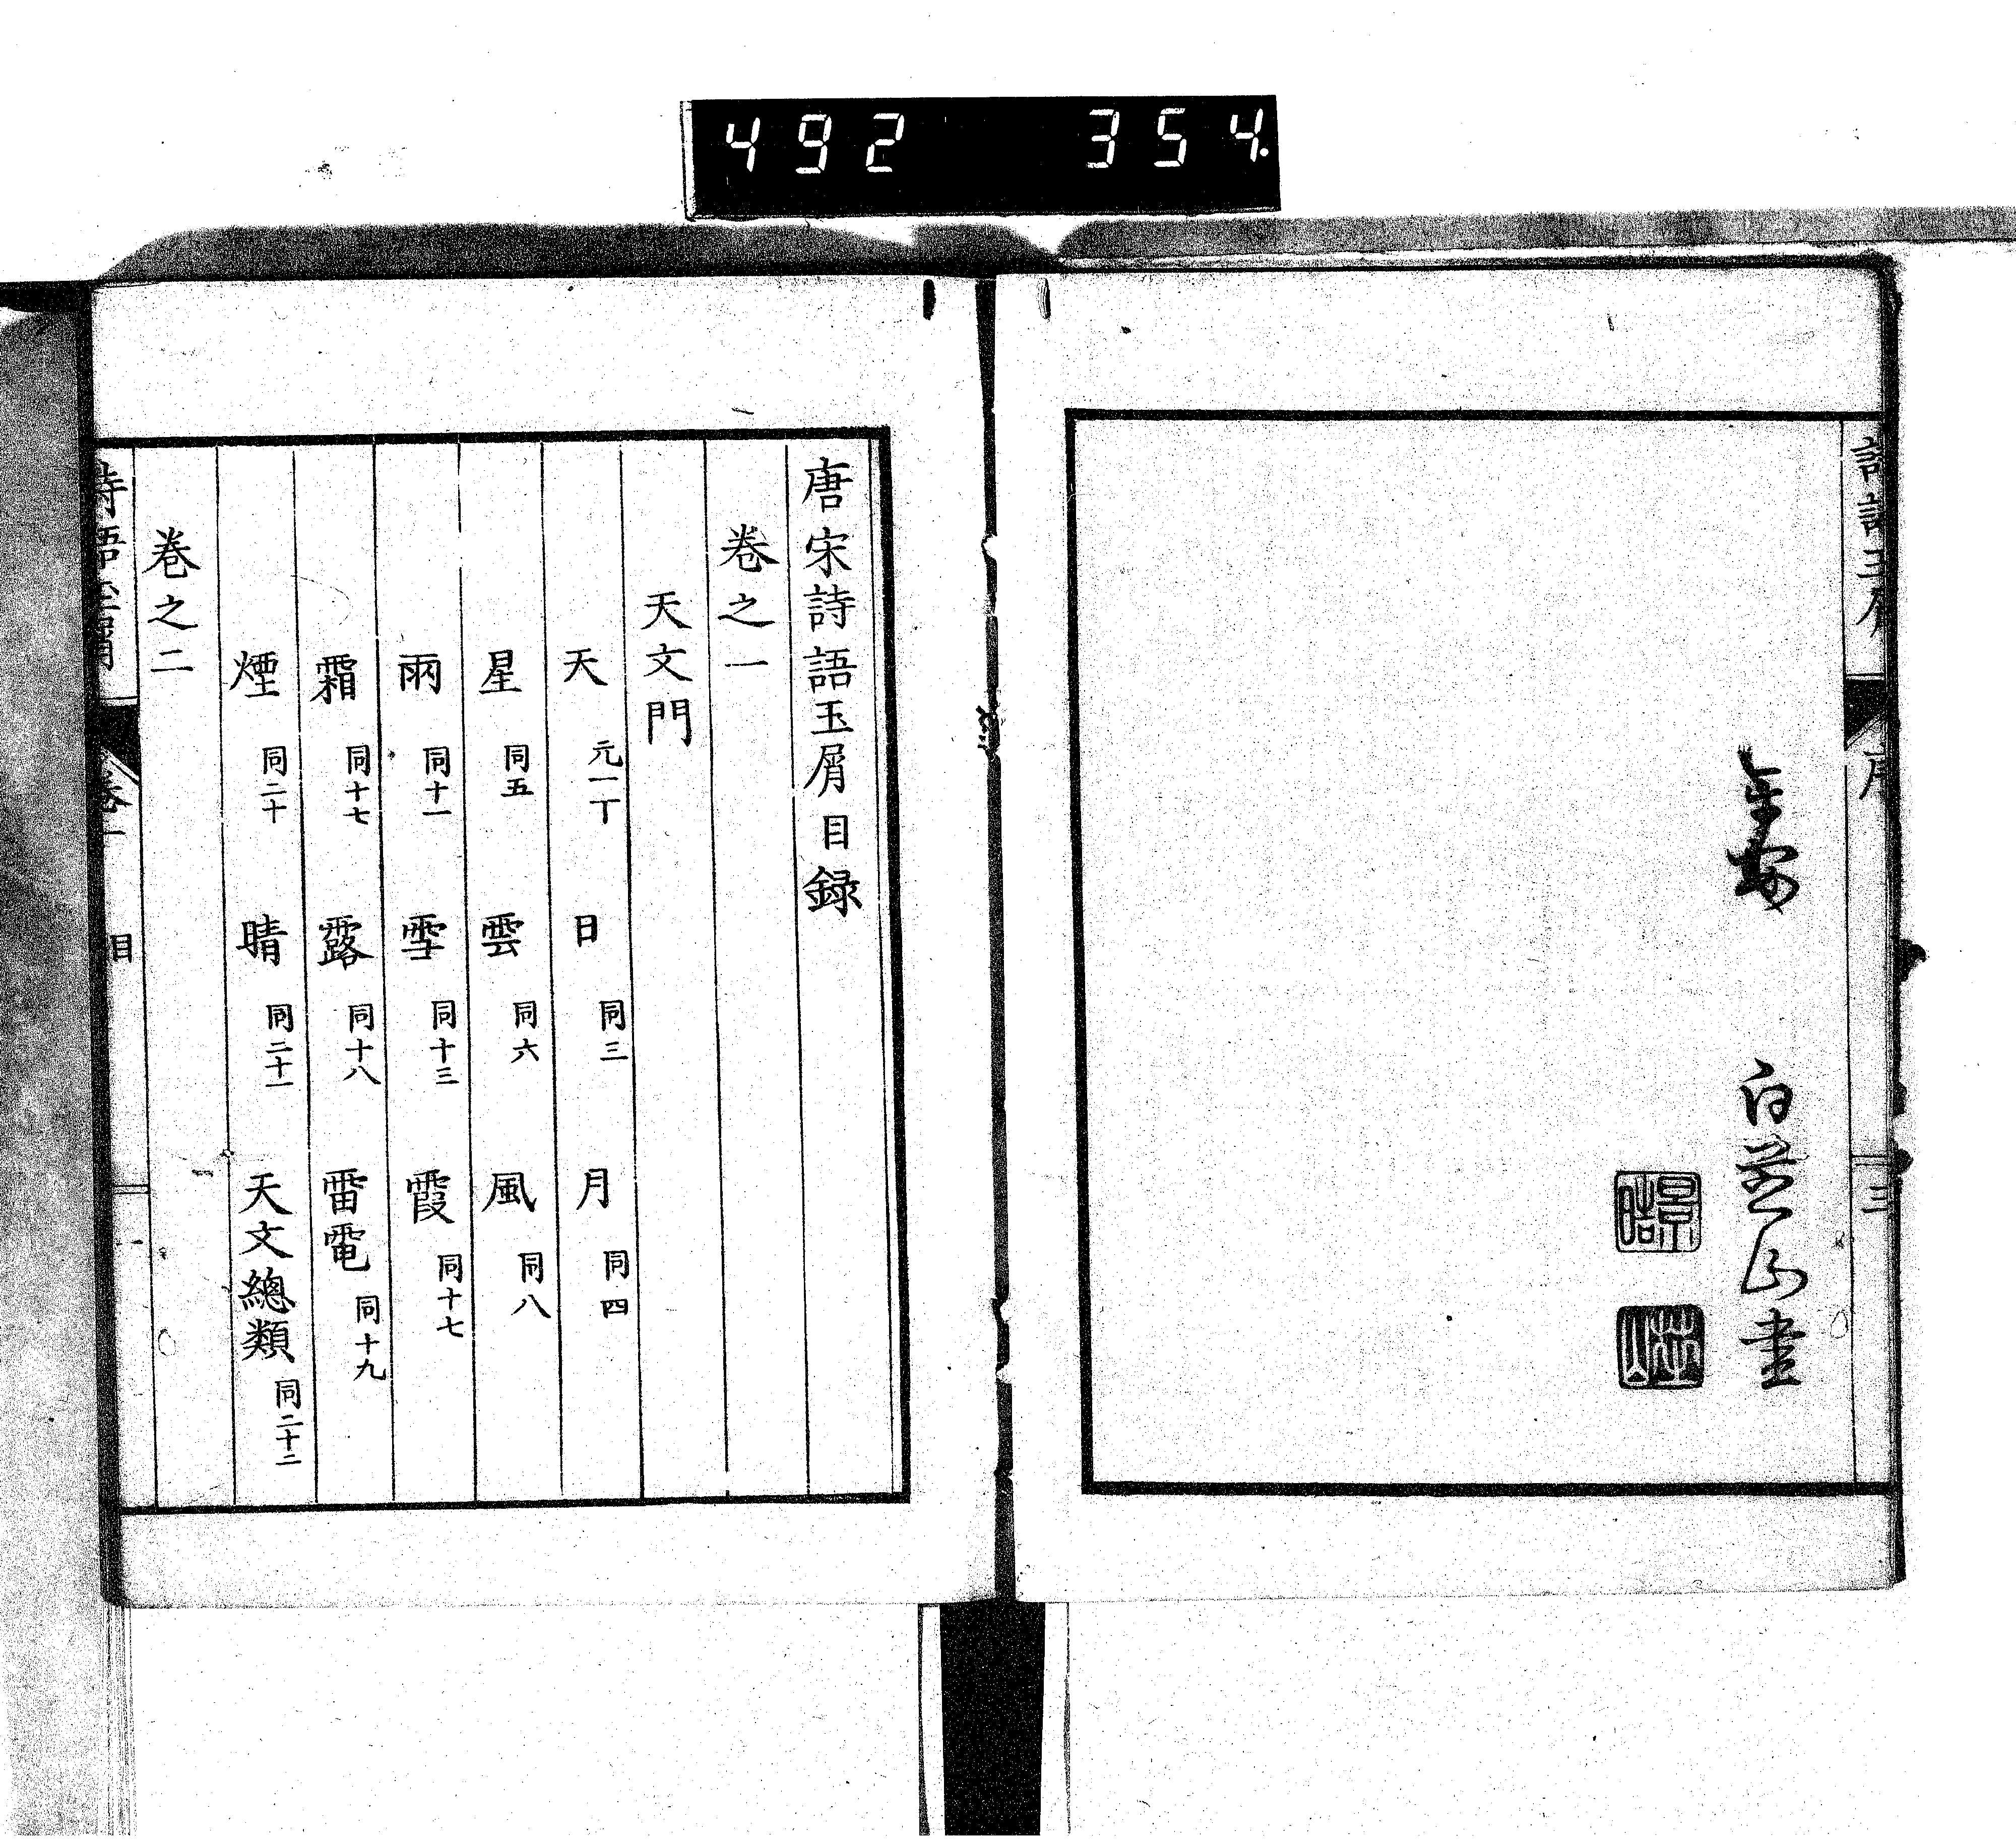 492 354.
序
三
書
唐宋詩語玉屑目録
卷之一
天文門
天 元一丁 日 同三 月 同四
星 同五 雲 同六 風 同八
雨 同十一 雪 同十三 霞 同十七
霜 同十七 露 同十八 雷電 同十九
煙 同二十 晴 同二十一 天文總類 同二十二
卷之二
詩語玉屑 卷一 目 一